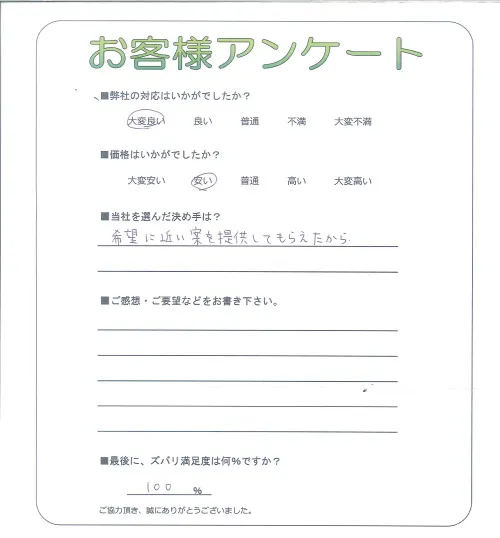 お客様アンケート
■弊社の対応はいかがでしたか?
大変良い 良い 普通 不満 大変不満
■価格はいかがでしたか?
大変安い 安い 普通 高い 大変高い
■当社を選んだ決め手は?
希望に近い案を提供してもらえたから
■ご感想・ご要望などをお書き下さい。
■最後に、ズバリ満足度は何%ですか?
100 %
ご協力頂き、誠にありがとうございました。